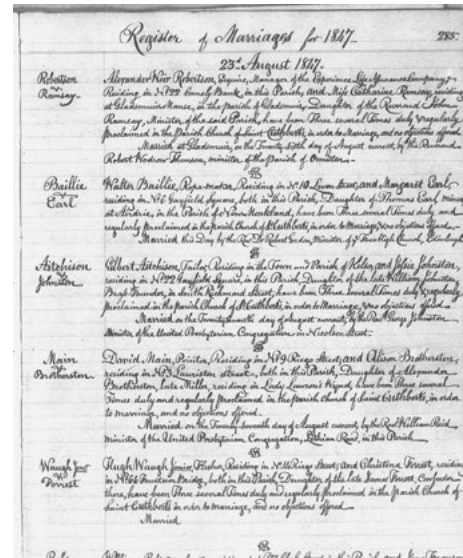 Register of Marriages for 1847. 285.
23d August 1847.
Robertson & Ramsay.
Alexander Weir Robertson, Esquire, Manager of the Experience Life Assurance Company,
Residing in No 22 Comely Bank, in this Parish, and Miss Catharine Ramsay, residing
at Gladsmuir Manse, in the parish of Gladsmuir, Daughter of the Reverend John
Ramsay, Minister of the said Parish, have been Three several Times duly & regularly
proclaimed in the Parish Church of Saint Cuthberts, in order to Marriage, and no objections offered.
Married at Gladsmuir, on the Twenty sixth day of August current, by the Reverend
Robert Wodrow Thomson, minister of the Parish of Ormiston.
Baillie & Earl
Walter Baillie, Rope-maker, Residing in No 10 Street, and Margaret Earl,
residing in No 6 Gayfield Square, both in this Parish, Daughter of Thomas Earl, miner
at Airdrie, in the Parish of New Monkland, have been Three several Times duly and
regularly proclaimed in the parish Church of St Cuthberts, in order to Marriage, & no objections offered.
Married this Day by the Revd Dr Robert Gordon, Minister of ye Free High Church, Edinburgh
Aitchison & Johnston
Gilbert Aitchison, Tailor, Residing in the Town and Parish of Kelso, and Johnston,
residing in No 22 Gayfield Square, in this Parish, Daughter of the late William Johnston
Brass Founder, in South Richmond Street, have been Three several Times duly & regularly
proclaimed in the Parish Church of St Cuthberts, in order to Marriage, & no objections offered.
Married on the Twenty seventh day of August current, by the Revd George Johnston
Minister of the United Presbyterian Congregation in Nicolson Street.
Main & Brotherston
David Main, Painter, Residing in No 9 Riego Street, and Alison Brotherston,
residing in No 3 Lauriston Street, both in this Parish, Daughter of Alexander
Brotherston, late Miller, residing in Lady Lawson's Wynd, have been Three several
Times duly and regularly proclaimed in the parish Church of Saint Cuthberts, in order
to marriage, and no objections offered.
Married on the Twenty seventh day of August current, by the Revd William Reid
minister of the United Presbyterian Congregation, Lothian Road, in this Parish.
Waugh Junr & Forrest
Hugh Waugh Junior, Flesher, Residing in No 14 Riego Street; and Christina Forrest, residing
in No 66 Fountain Bridge, both in this Parish, Daughter of the late James Forrest,
there, have been Three several Times duly and regularly proclaimed in the Parish Church of
Saint Cuthberts in order to marriage, and no objections offered.
Married